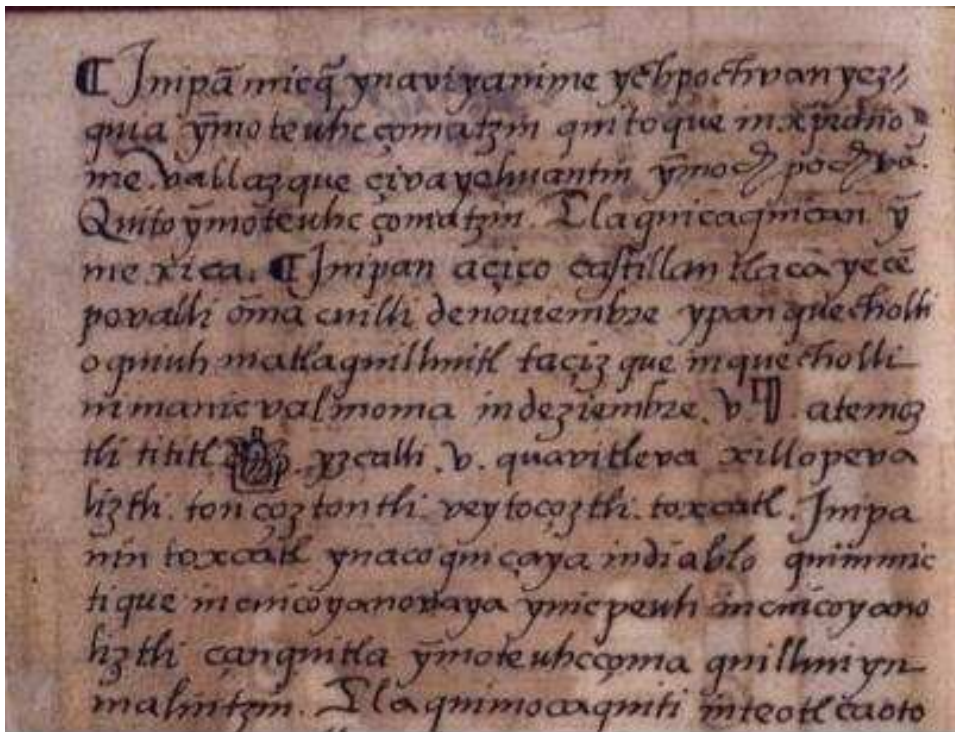 ¶ Inipā micq̄ ynaviyanime ychpochvan yez,
quia ȳmoteuhcçomatzin quitoque in xp̄idño
me. vallazque çivayehuantin ȳmoch poch vā.
Quito ȳmoteuhcçomatzin. Tlaquicaquicān ȳ
mexica. ¶ Inipan açico castillan tlacā yecē
povalli ōmacuilli denouiembre ypan quecholli
oquiuh matlaquilhuitl taçizque in quecholli
inmanic valmoma indeziembre. v. atemoz
tli tititl yzcalli .v. quavitleva xillopeva
liztli. tonçoztontli veytoçoztli. toxcatl. Inipa
nin toxcatl ynacoquiçaya indiablo quinmic
tique in ymicpeuh
liztli çanquitla ȳmoteuhcçoma quilhui yn
malintzin. Tlāquimocaquiti inteotl cāoto